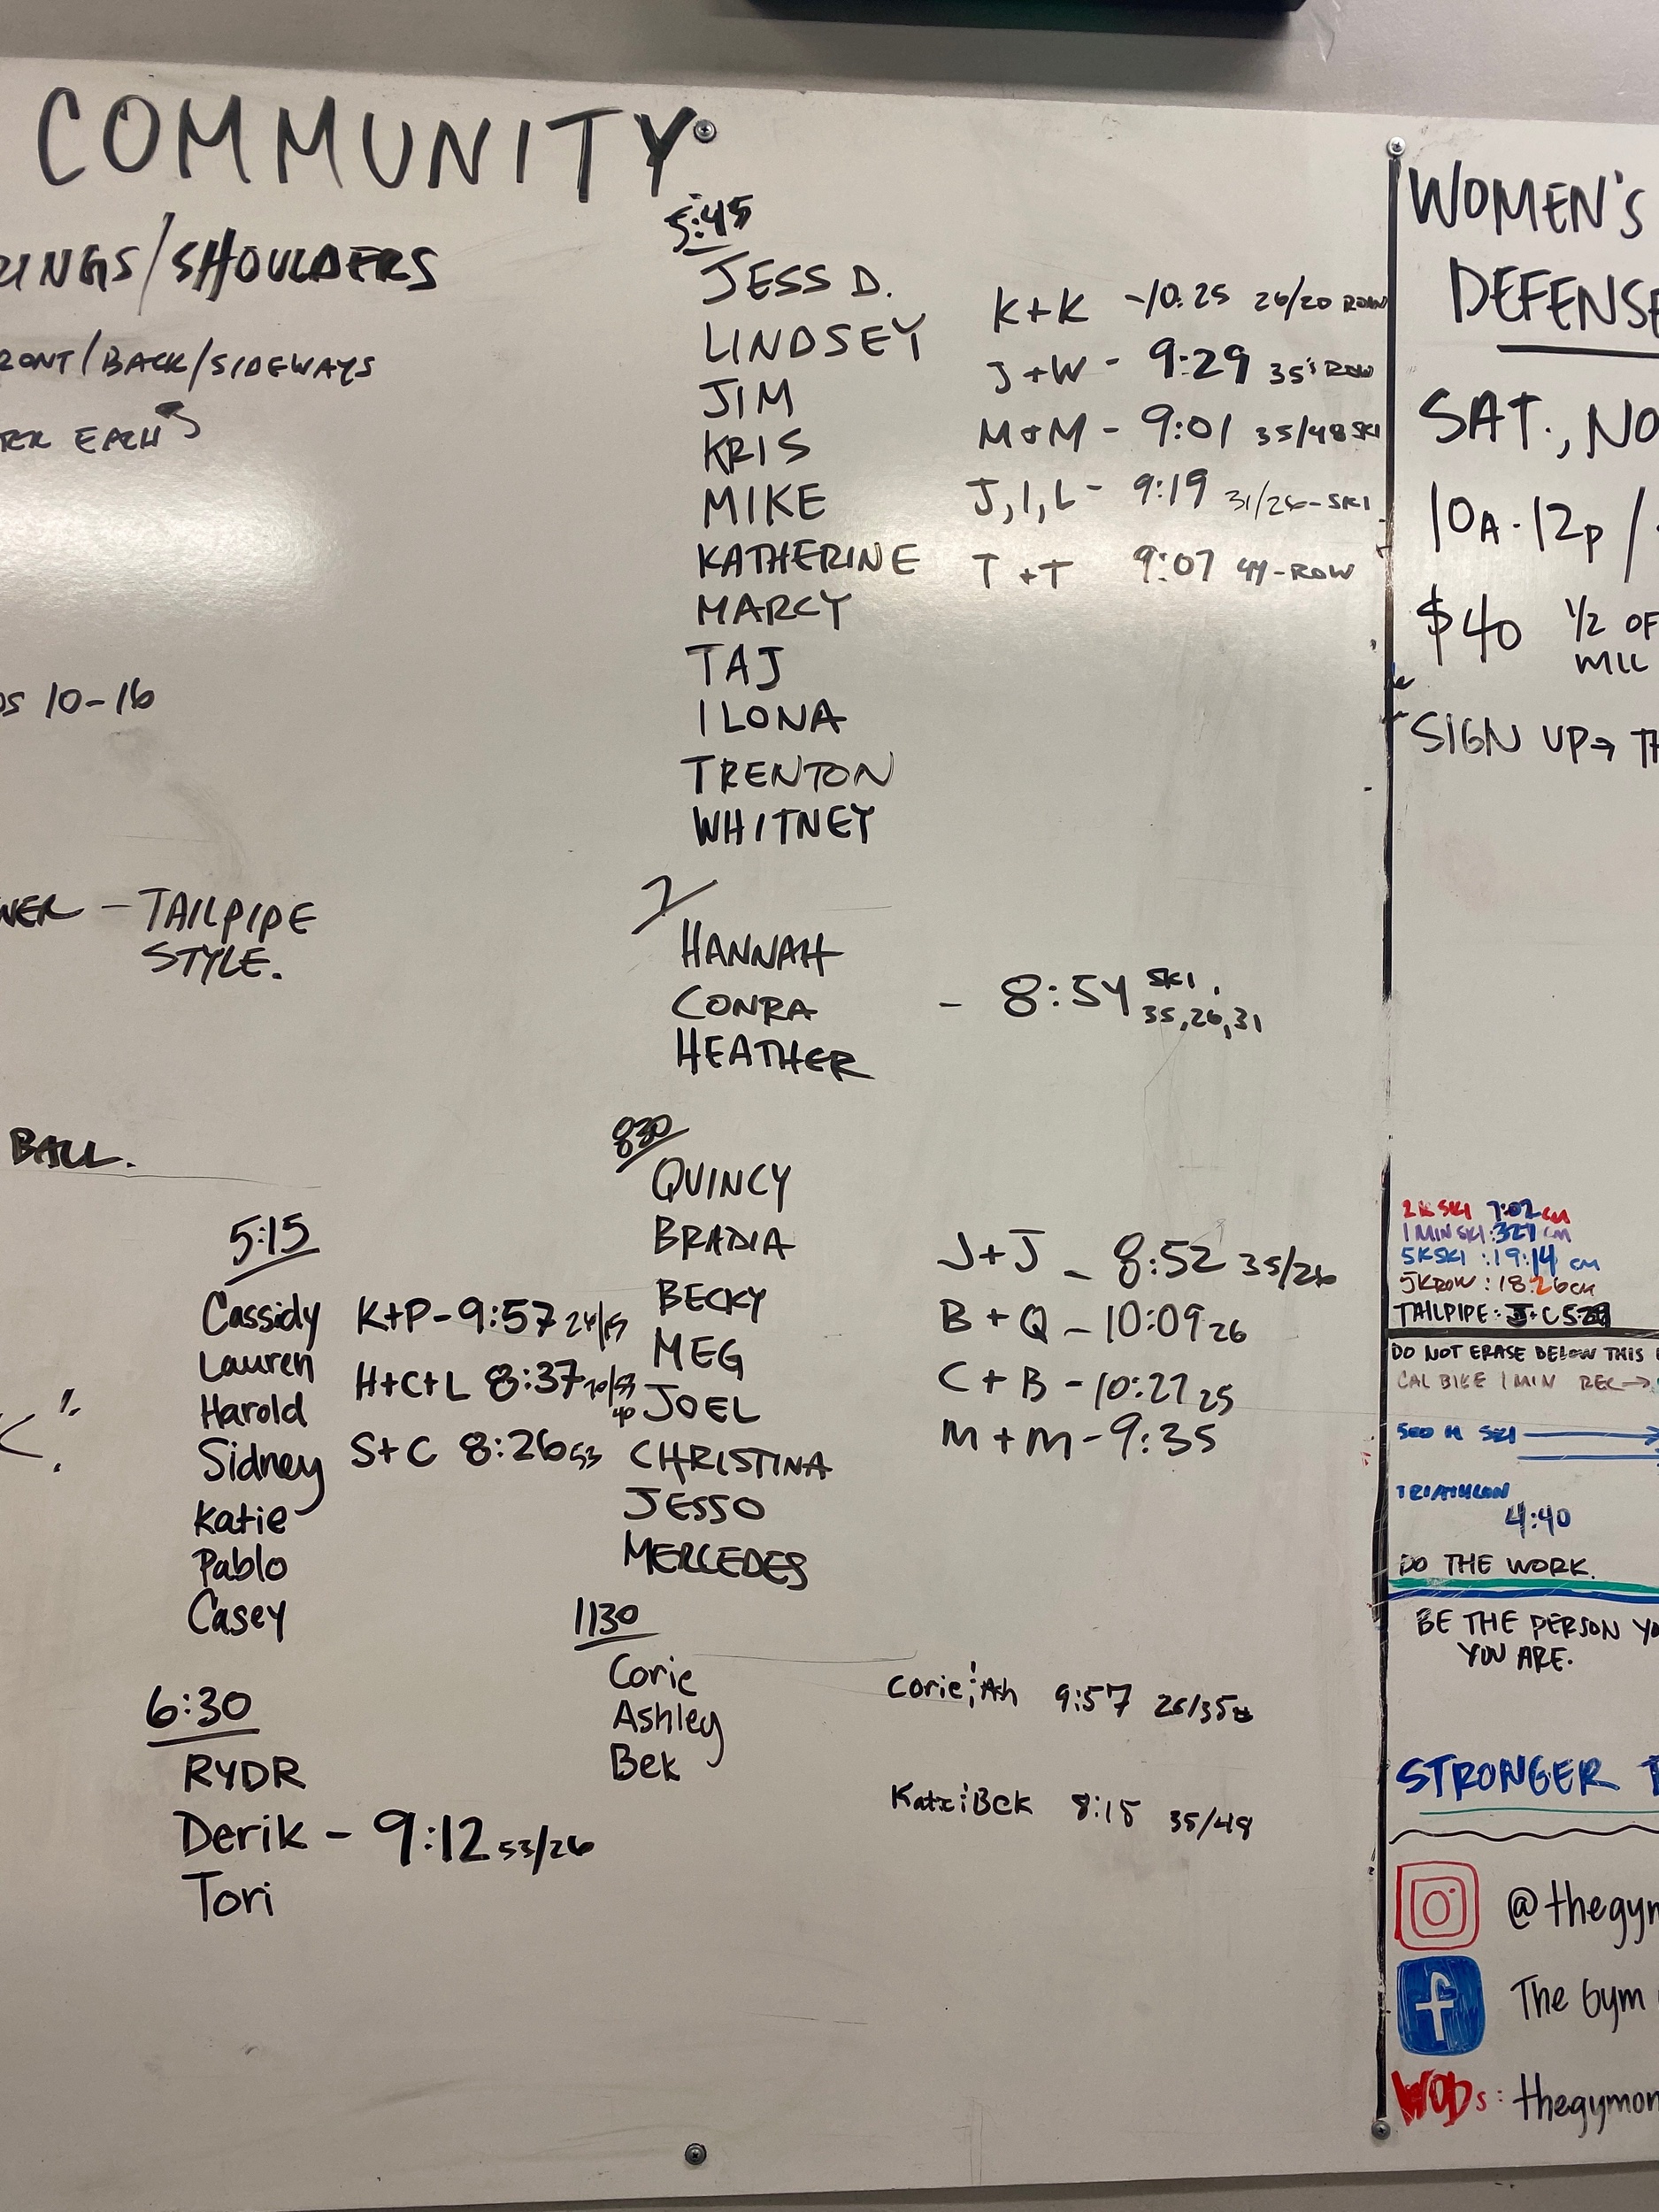 COMMUNITY
/SHOULDERS
/BACK/SIDEWAYS
EACH
10-16
- TAILPIPE
STYLE.
BALL.
5:15
Cassidy K+P-9:57
Lauren
H+C+L 8:37
Harold
Sidney S+C 8:26 53
Katie
Pablo
Casey
6:30
RYDR
Derik - 9:12 53/26
Tori
5:45
JESS D.
LINDSEY
JIM
KRIS
MIKE
KATHERINE
MARCY
TAJ
ILONA
TRENTON
WHITNEY
K+K -10:25 26/20 ROW
J+W - 9:29 35's ROW
M+M - 9:01 35/48 SKI
J,I,L - 9:19 31/26-SKI
T+T 9:07 44-ROW
7
HANNAH
CONRA - 8:54 SKI
35,26,31
HEATHER
830
QUINCY
BRADIA
BECKY
MEG
JOEL
CHRISTINA
JESSO
MERCEDES
J+J - 8:52 35/26
B+Q - 10:09 26
C+B - 10:27 25
M+M - 9:35
1130
Corie
Ashley
Bek
Corie Ash 9:57 26/35
Bek 8:15 35/48
WOMEN'S
DEFENSE
SAT.,
10A-12P /
$40 1/2
MIL
SIGN UP→
2K SKI 7:02 CM
1 MIN SKI: 327 CM
5K SKI : 19:14 CM
5K ROW : 18:26 CM
TAILPIPE: J+C
DO NOT ERASE BELOW THIS
CAL BIKE 1 MIN REC→
500 M SKI
TRIATHLON
4:40
DO THE WORK.
BE THE PERSON
YOU ARE.
STRONGER
The Gym
WODs: